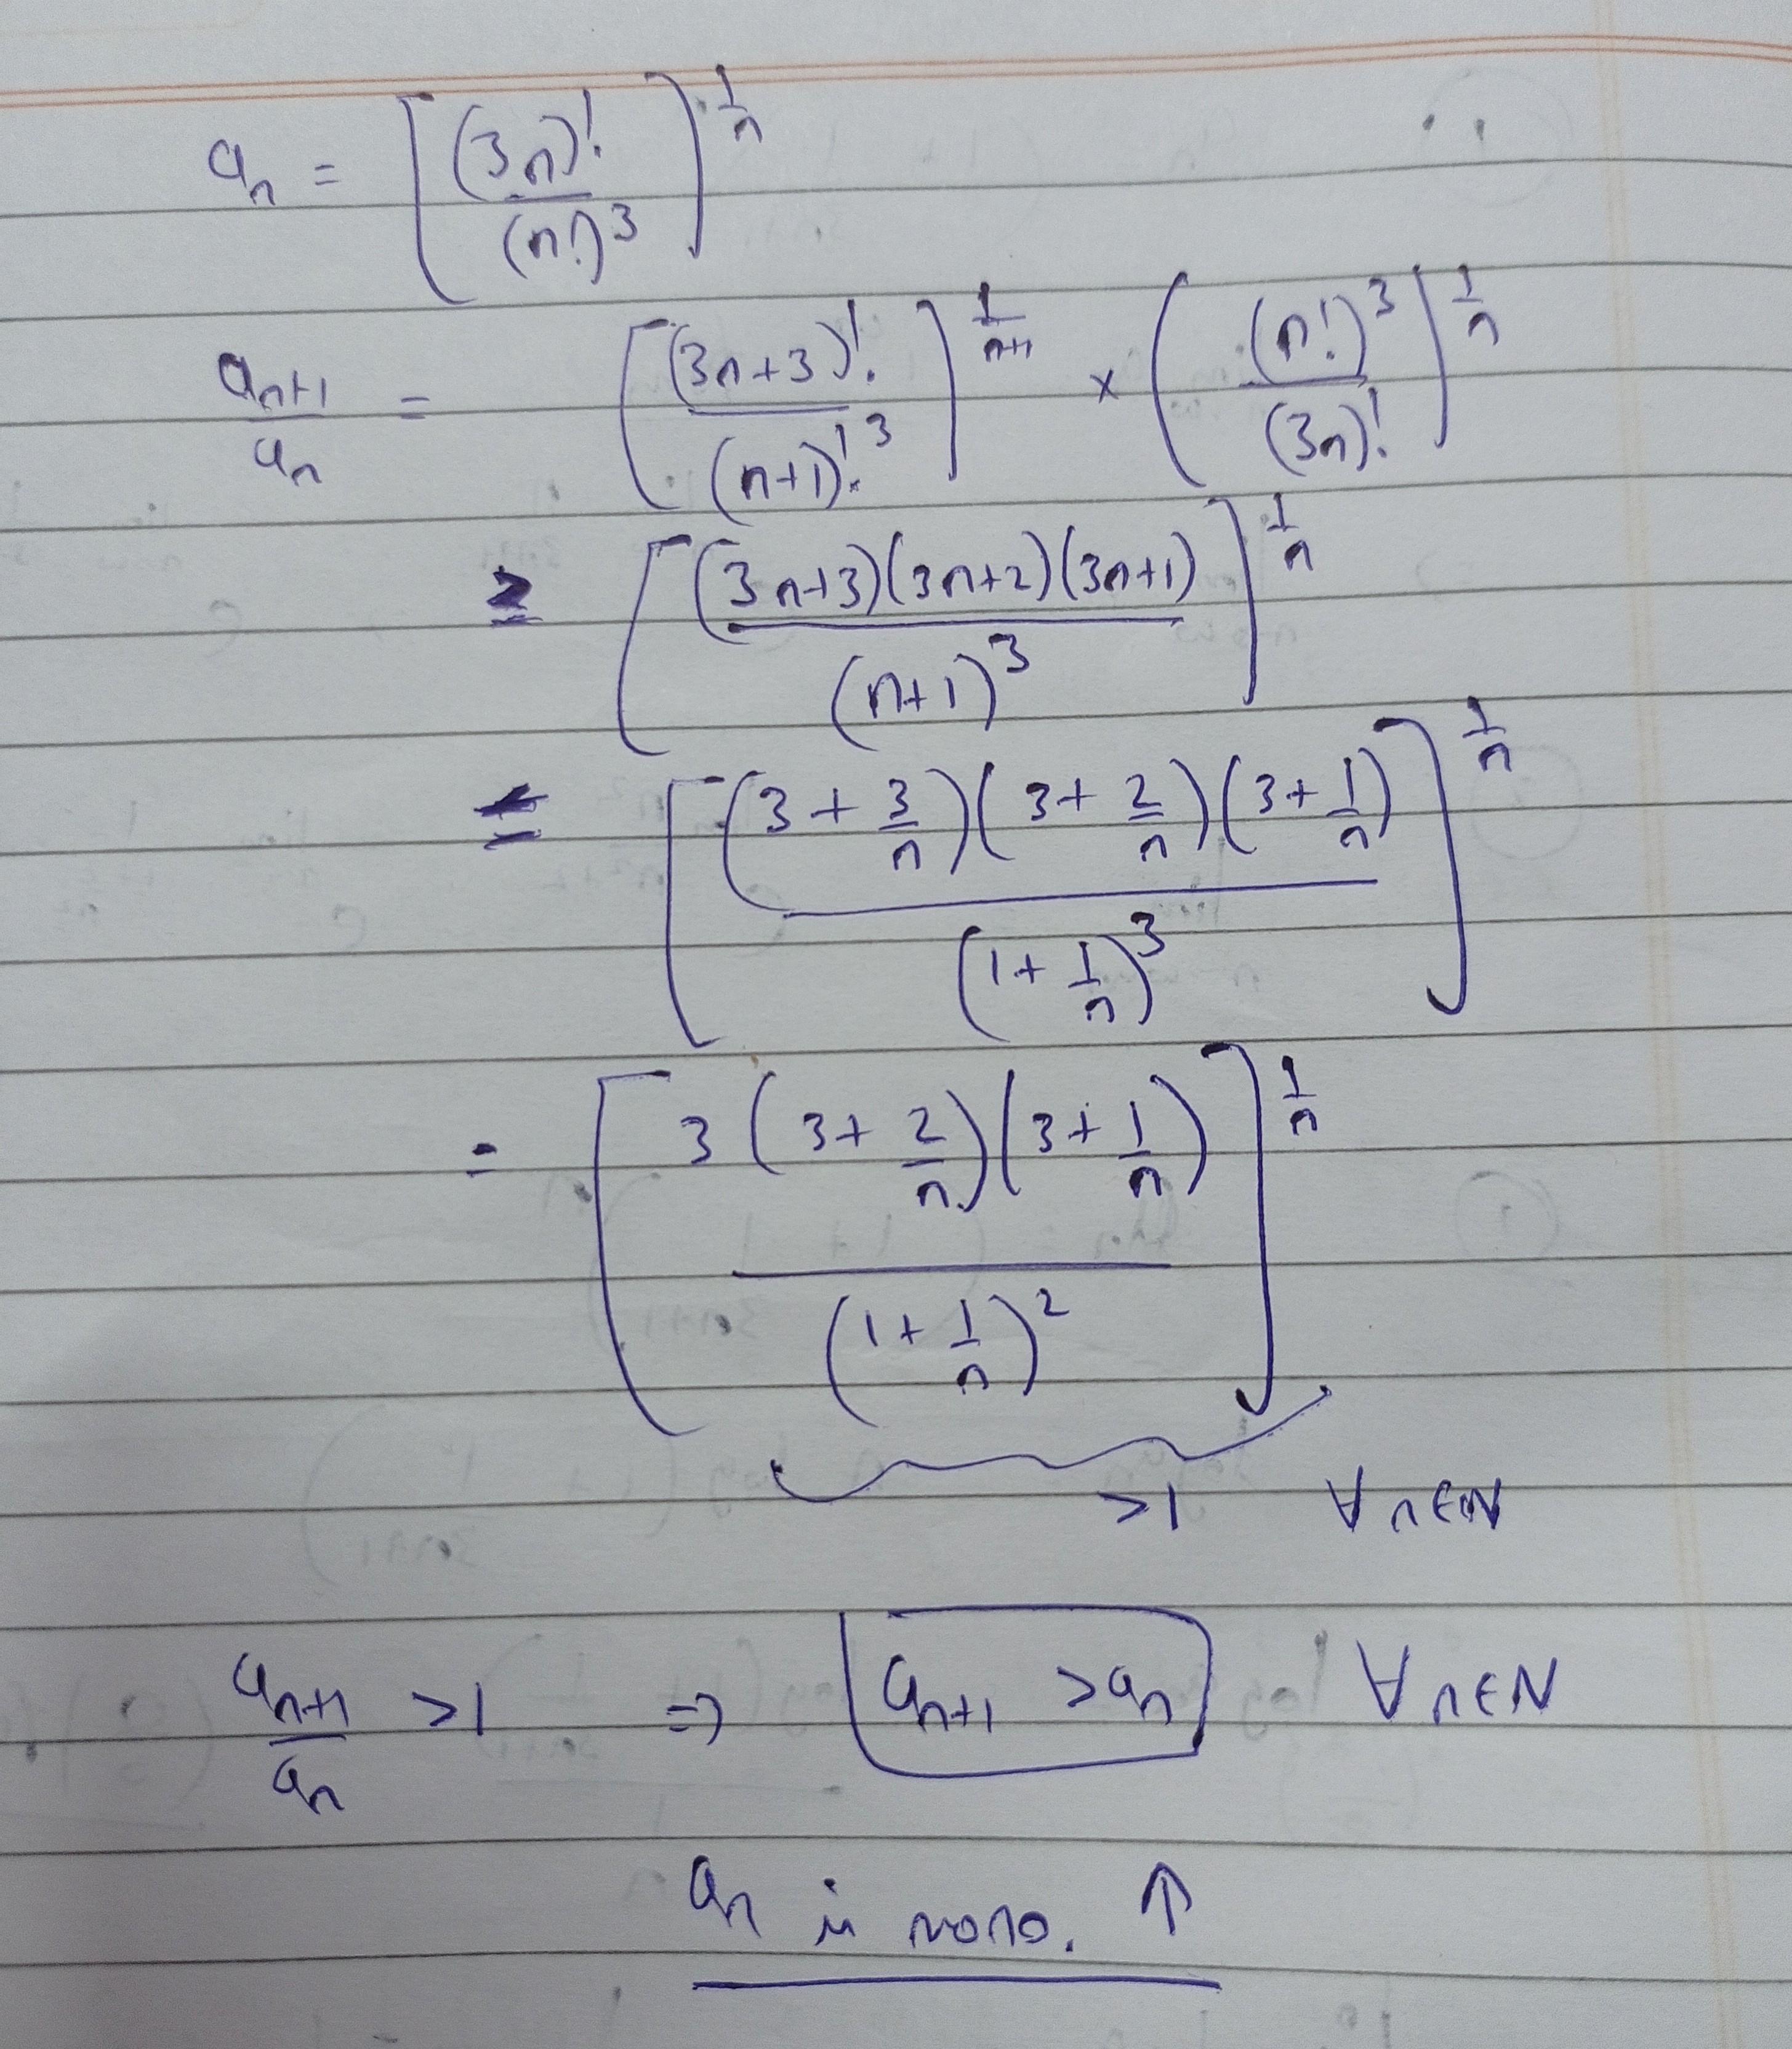 aₙ = [(3n)! / (n!)³]^(1/n)
aₙ₊₁ / aₙ = [(3n+3)! / (n+1)!³]^(1/(n+1)) × ((n!)³ / (3n)!]^(1/n)
≥ [(3n+3)(3n+2)(3n+1) / (n+1)³]^(1/n)
= [(3 + 3/n)(3 + 2/n)(3 + 1/n) / (1 + 1/n)³]^(1/n)
= [3(3 + 2/n)(3 + 1/n) / (1 + 1/n)²]^(1/n)
>1 ∀ n∈N
aₙ₊₁ / aₙ >1 ⇒ aₙ₊₁ >aₙ ∀ n∈N
aₙ is mono. ↑